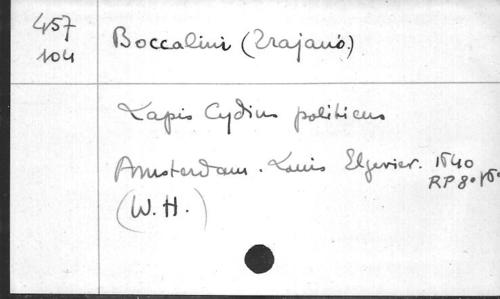 457
104
Boccalini (Trajano.)
Lapis Lydius politicus
Amsterdam. Louis Elzevier. 1640
RP 8º
(W.H.)